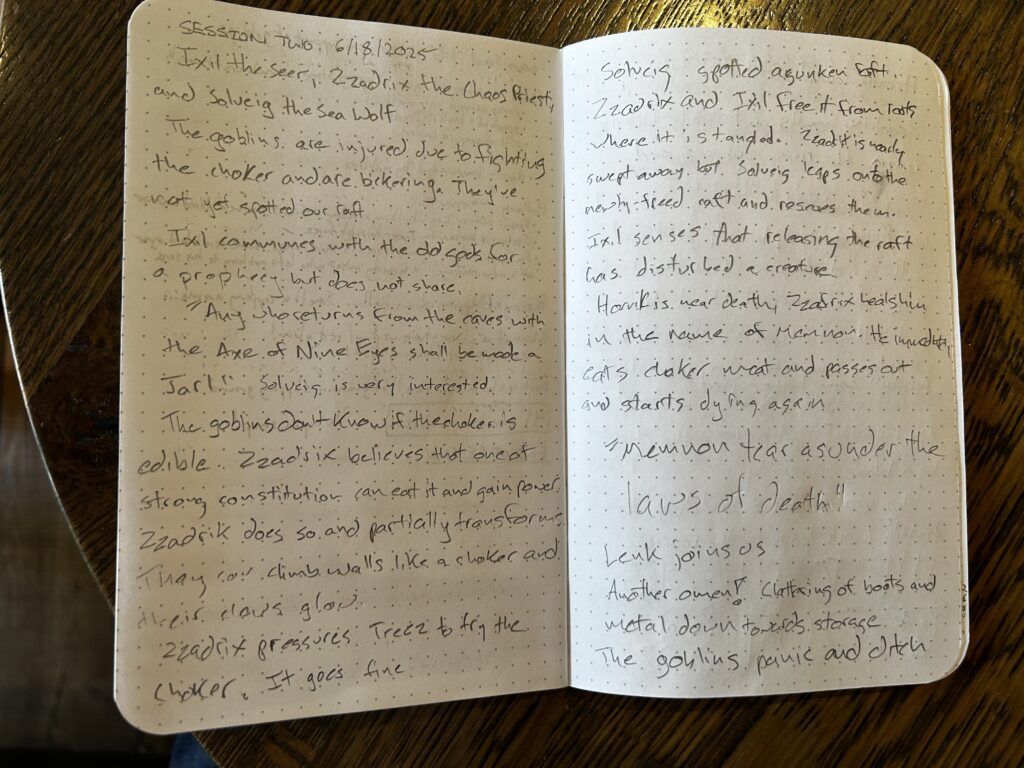 SESSION TWO 6/18/2025
Ixil the seer, Zzadrix the Chaos Priest,
and Solveig the Sea Wolf
The goblins are injured due to fighting
the choker and are bickering. They've
not yet spotted our raft
Ixil communes with the old gods for
a prophecy but does not share.
"Any who returns from the caves with
the Axe of Nine Eyes shall be made a
Jarl!" Solveig is very interested.
The goblins don't know if the choker is
edible. Zzadrix believes that one of
strong constitution can eat it and gain power
Zzadrix does so and partially transforms
They can climb walls like a choker and
their claws glow
Zzadrix pressures Treez to try the
choker. It goes fine
Solveig spotted a sunken raft.
Zzadrix and Ixil free it from roots
where it is tangled. Zzadrix is nearly
swept away but Solveig leaps onto the
newly-freed raft and rescues them.
Ixil senses that releasing the raft
has disturbed a creature
is near death, Zzadrix heals him
in the name of Memnon. He immediately
eats choker meat and passes out
and starts dying again
"Memnon tear asunder the
laws of death"
Lenk joins us
Another omen! Clattering of boots and
metal down towards storage
The goblins panic and ditch